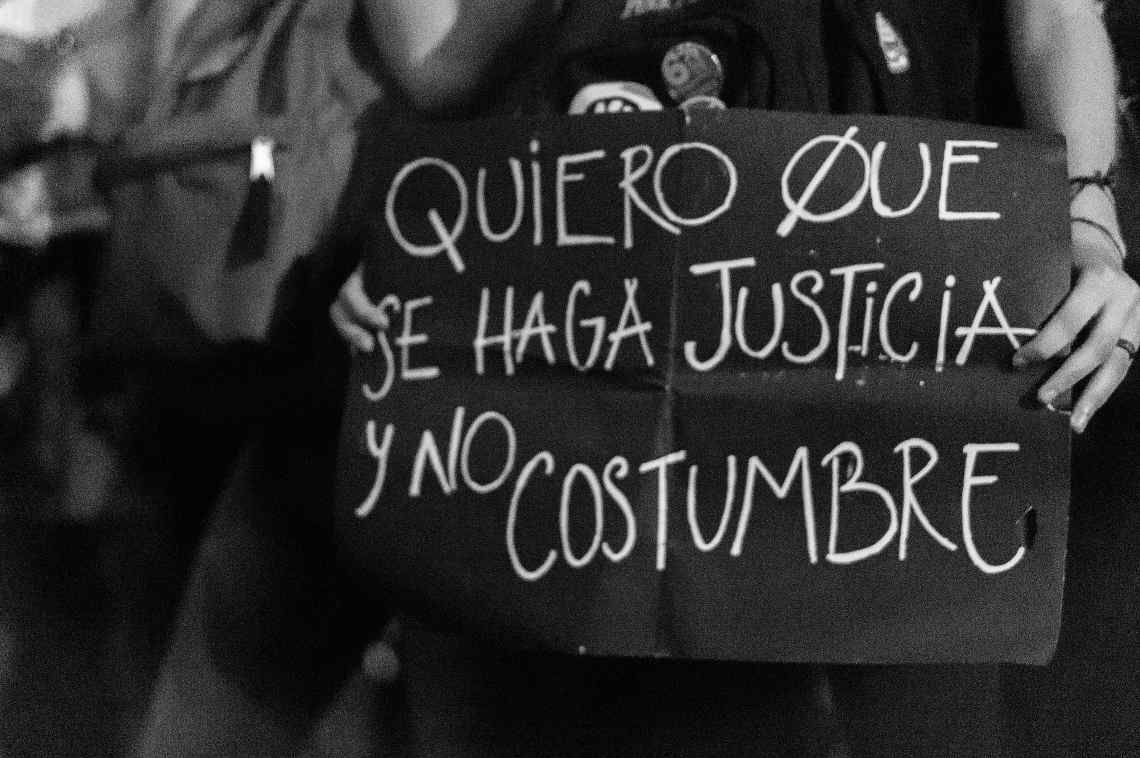 QUIERO QUE
SE HAGA JUSTICIA
Y NO COSTUMBRE